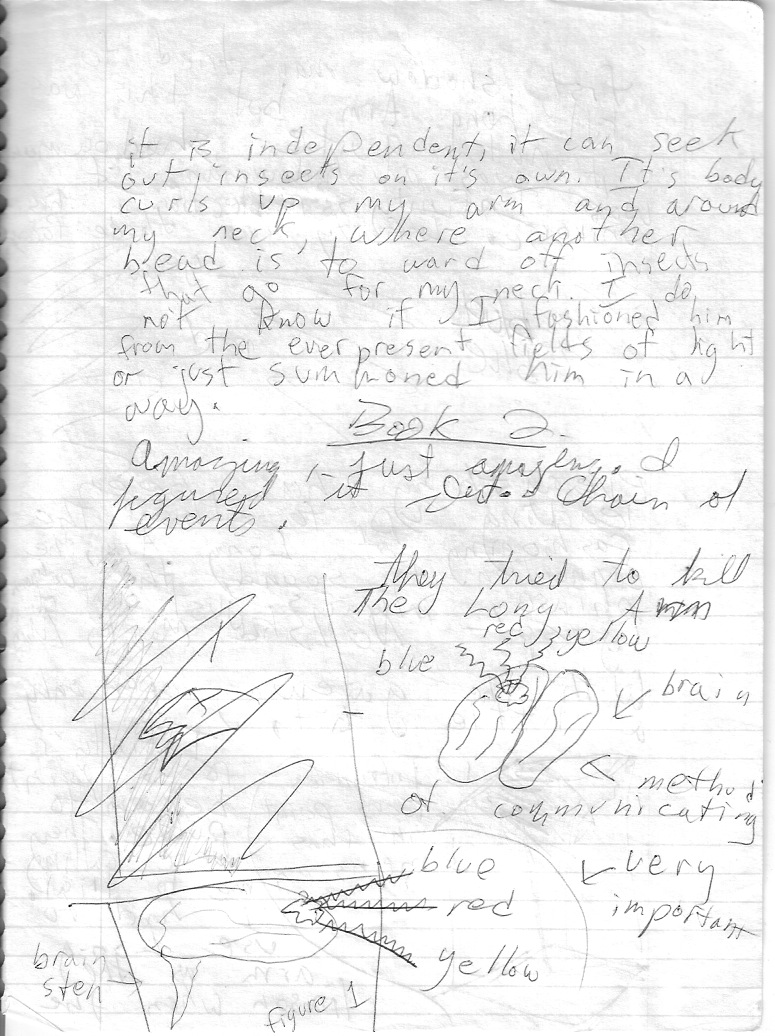 it is independent, it can seek
out insects on it's own. It's body
curls up my arm and around
my neck, where another
head is to ward off insects
that go for my neck. I do
not know if I fashioned him
from the everpresent fields of light
or just summoned him in a
way.
Book 2.
Amazing, just amazing. I
figured it out. Chain of
events.
they tried to kill
The Long Arm
red yellow
blue
brain
method
of communicating
blue
very
red
important
yellow
brain
sten
figure 1